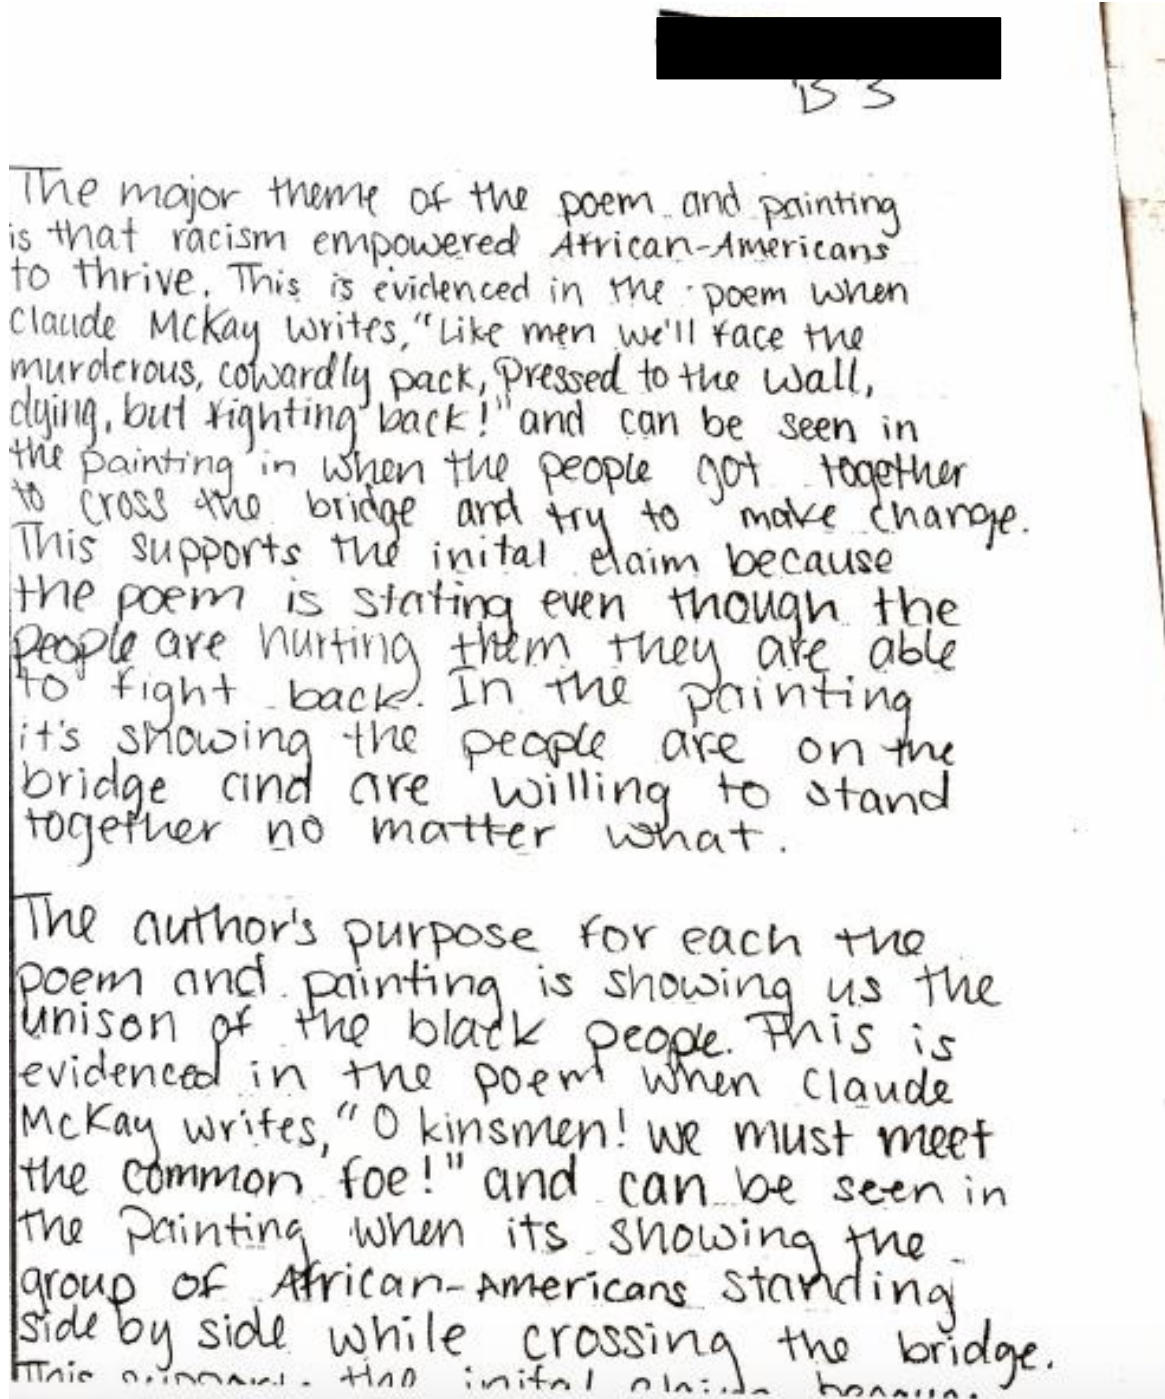 B3
The major theme of the poem and painting
is that racism empowered African-Americans
to thrive. This is evidenced in the poem when
Claude McKay writes, "Like men we'll face the
murderous, cowardly pack, Pressed to the wall,
dying, but fighting back!" and can be seen in
the painting in when the people got together
to cross the bridge and try to make change.
This supports the inital claim because
the poem is stating even though the
people are hurting them they are able
to fight back. In the painting
it's showing the people are on the
bridge and are willing to stand
together no matter what.
The author's purpose for each the
poem and painting is showing us the
unison of the black people. This is
evidenced in the poem when Claude
McKay writes, "O kinsmen! we must meet
the common foe!" and can be seen in
the painting when its showing the
group of African-Americans standing
side by side while crossing the bridge.
This supports the inital claim because